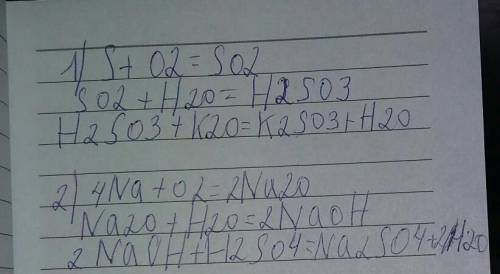 1) S + O2 = SO2
SO2 + H2O = H2SO3
H2SO3 + K2O = K2SO3 + H2O
2) 4Na + O2 = 2Na2O
Na2O + H2O = 2NaOH
2NaOH + H2SO4 = Na2SO4 + 2H2O